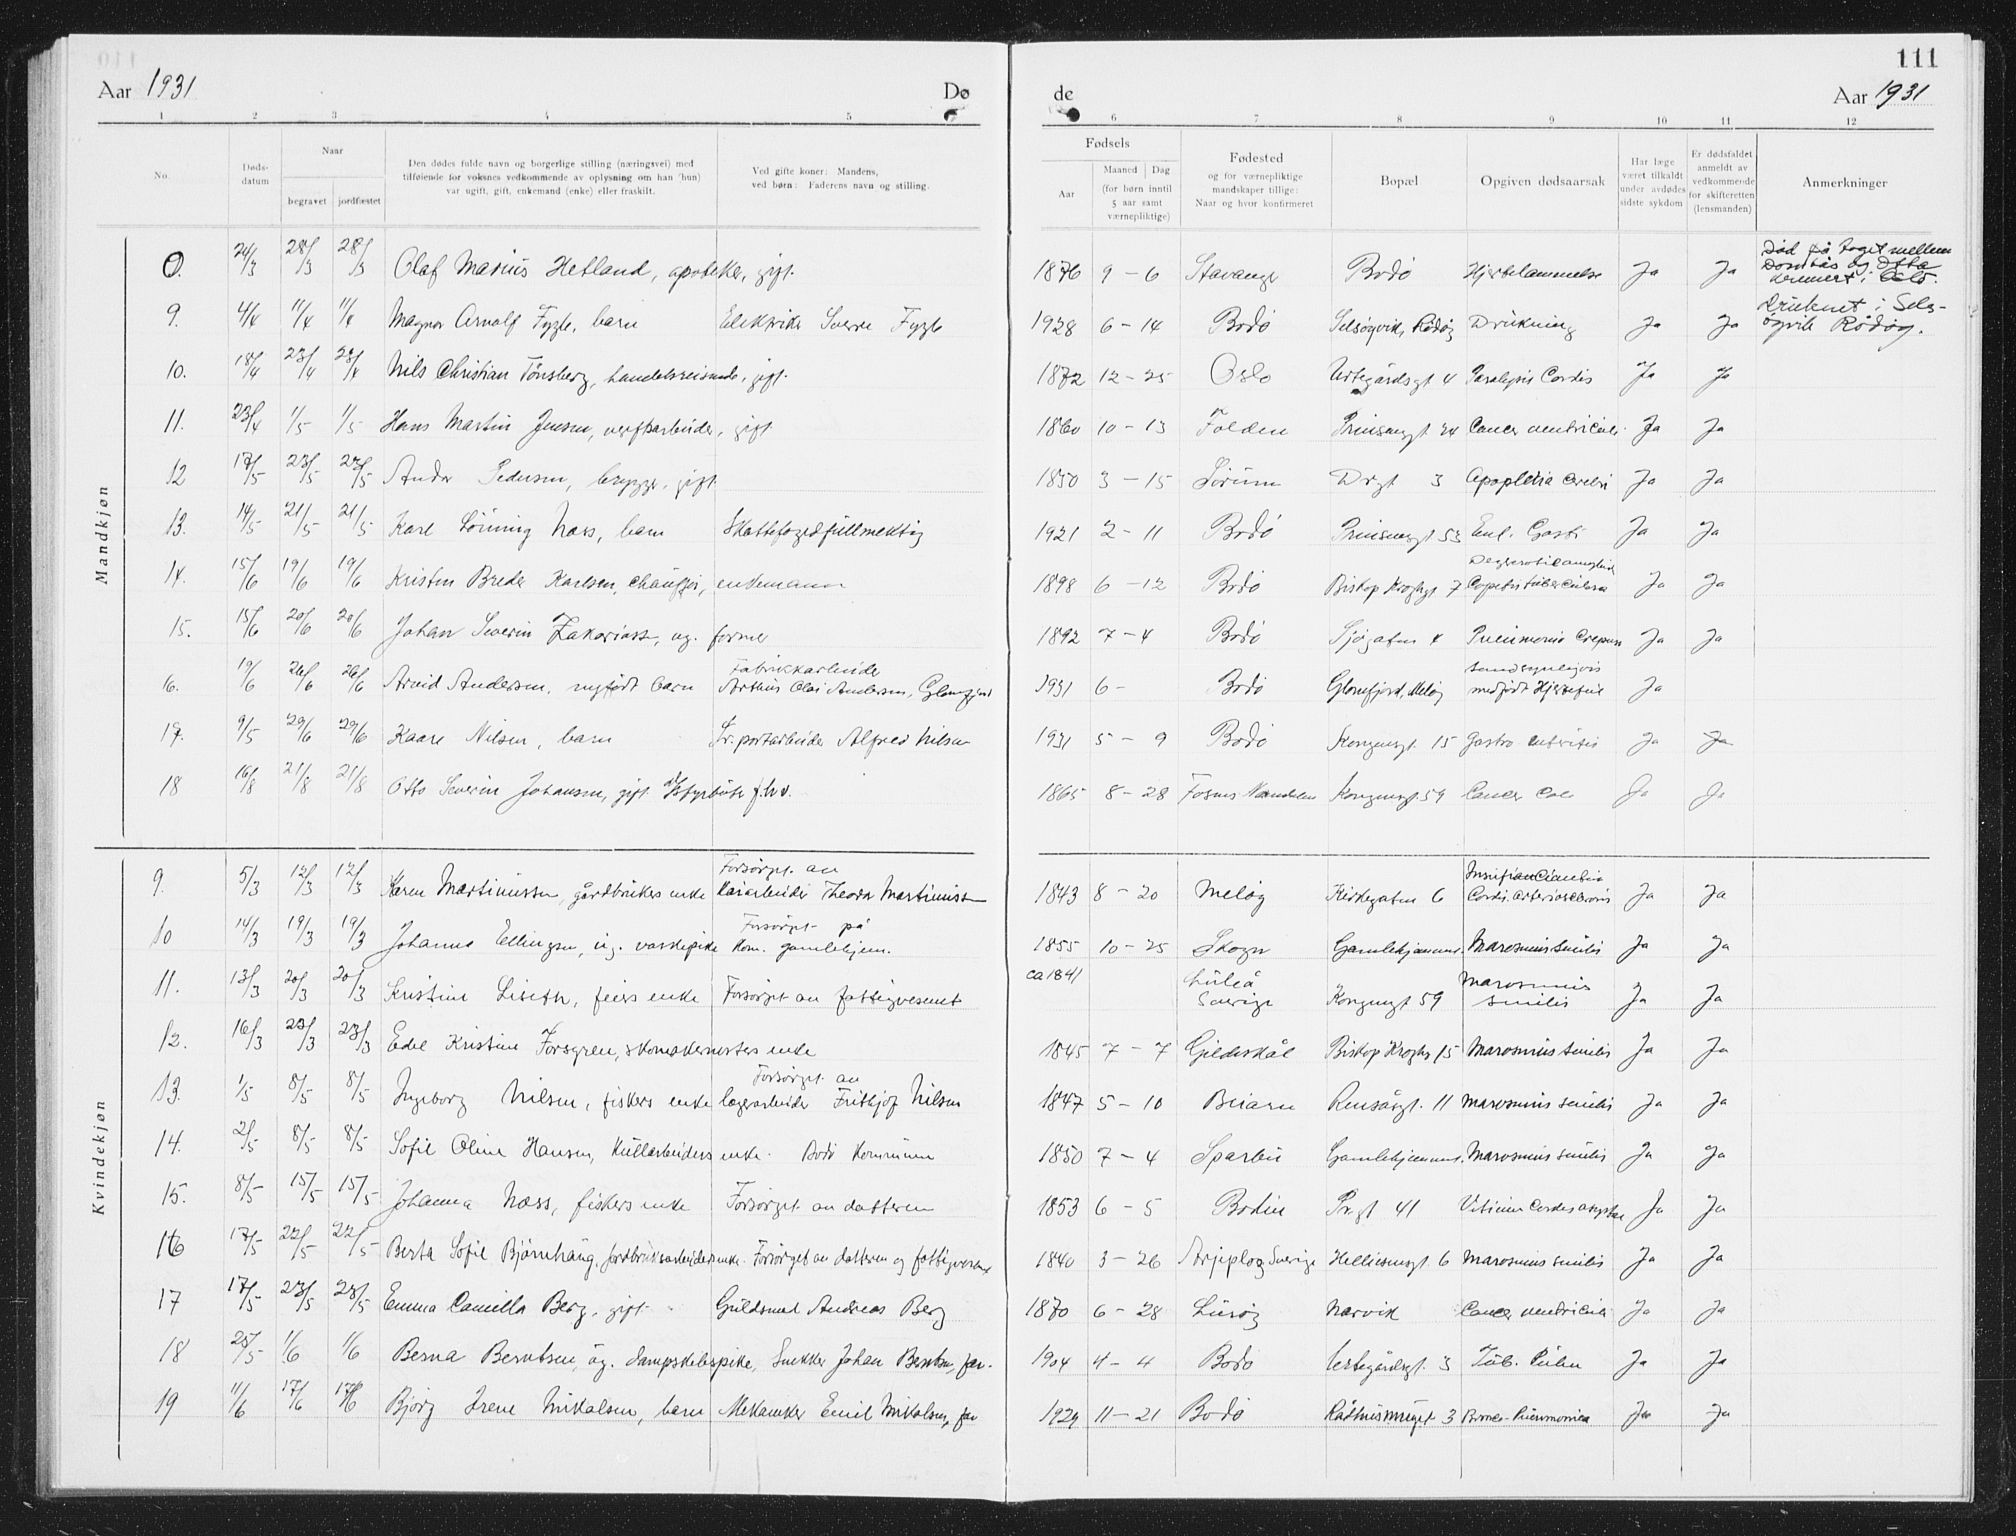 111
Aar 1931 Dø de Aar 1931
1 2 3 4 5 6 7 8 9 10 11 12
No.
Døds-
datum
Naar
begravet jordfæstet
Den dødes fulde navn og borgerlige stilling (næringsvei) med
tilføiende for voksnes vedkommende av oplysning om han (hun)
var ugift, gift, enkemand (enke) eller fraskilt.
Ved gifte koner: Mandens,
ved børn: Faderens navn og stilling.
Fødsels
Aar
Maaned | Dag
(for børn inntil
5 aar samt
værnepliktige)
Fødested
og for værnepliktige
mandskaper tillige:
Naar og hvor konfirmeret
Bopæl
Opgiven dødsaarsak
Har læge
været tilkaldt
under avdødes
sidste sykdom
Er dødsfaldet
anmeldt av
vedkommende
for skifteretten
(lensmanden)
Anmerkninger
Mandkjøn
0. 24/3 28/3 28/3 Olaf Marius Hetland, apoteker, gift. 1876 9 - 6 Stavanger Bodø Hjertelammelse Ja Ja Død på toget mellem Dombås og Otta
9. 4/4 11/4 11/4 Magnor Arnolf Fygle, barn Elektriker Sverre Fygle 1928 6 - 14 Bodø Selsøyvik, Rødøy Drukning Ja Ja Druknet i Sels-
øyvik Rødøy.
10. 18/4 23/4 23/4 Nils Christian Tønsberg, handelsreisende, gift. 1872 12 - 25 Oslo Urtegårdsgt 4 Paralysis Cordis Ja Ja
11. 23/4 1/5 1/5 Hans Martin Jensen, verftsarbeider, gift 1860 10 - 13 Folden Prinsensgt 24 Cancer ventriculi Ja Ja
12 17/5 23/5 23/5 Andor Pedersen, brygger, gift 1850 3 - 15 Sørum Drgt 3 Apoplexia Cerebri Ja Ja
13. 14/5 21/5 21/5 Kare Lønning Næss, barn Skattefogedfullmektig 1921 2 - 11 Bodø Prinsensgt 53 Ja Ja
14. 15/6 19/6 19/6 Kristen Breder Karlsen, chauffør, enkemann 1898 6 - 12 Bodø Bispop Kroghgt 7 Ja Ja
15. 15/6 20/6 20/6 Johan Severin Zakariass, ug. former 1892 7 - 4 Bodø Sjøgaten 4 Pneumonia Ja Ja
Fabrikkarbeider sandsynligvis
16. 19/6 26/6 26/6 Arvid Andersen, nyfødt barn Arthur Olai Andersen, Glomfjord 1931 6 - Bodø Glomfjord, Meløy medfødt Hjertefeil Ja
17. 9/5 29/6 29/6 Kaare Nilsen, barn Tr.portarbeider Alfred Nilsen 1931 5 - 9 Bodø Kongensgt. 15 Gastro enteritis Ja Ja
18 16/8 21/8 21/8 Otto Severin Johansen, gift f.h.v. 1865 8 - 28 Fosnes Namdalen Kongensgt. 59 Cancer Coli Ja Ja
Kvindekjøn
Forsørget av
9. 5/3 12/3 12/3 Karen Martinussen, gårdbrukers enke Kaiarbeider Theodor Martinussen 1843 8 - 20 Meløy Kirkegaten 6 Cordis. Arteriosclerosis Ja Ja
Forsørget på
10 14/3 19/3 19/3 Johanna Ellingsen, ug. vaskepike Kom. gamlehjem. 1855 10 - 25 Skogn Gamlehjemmet. Marasmus senilis Ja Ja
11. 13/3 20/3 20/3 Kristine Liseth, feiers enke Forsørget av fattigvesenet ca 1841 Luleå
Sverige Kongensgt 59 Marasmus
senilis Ja Ja
12. 16/3 23/3 23/3 Edel Kristine Forsgren, skomakermesters enke 1845 7 - 7 Gildeskål Biskop Kroghs 15 Marasmus senilis Ja Ja
Forsørget av
13. 1/5 8/5 8/5 Ingeborg Nilsen, fiskers enke lagerarbeider Fritjof Nilsen 1847 5 - 10 Beiarn Rensåsgt. 11 Marasmus senilis Ja Ja
14. 2/5 8/5 8/5 Sofie Oline Hansen, Kullarbeiders enke. Bodø Kommune 1850 7 - 4 Sparbu Gamlehjemmet. Marasmus senilis Ja Ja
15. 8/5 15/5 15/5 Johanna Næss, fiskers enke Forsørget av datteren 1853 6 - 5 Bodin Pr.gt 41 Vitium Cordis Ja Ja
16 17/5 22/5 22/5 Berta Sofie Bjørnhaug, jordbruksarbeiders enke. Forsørget av datteren og fattigvesenet 1840 3 - 26 Arjeplog Sverige Hellionsgt. 6 Marasmus senilis Ja Ja
17 17/5 23/5 23/5 Emma Camilla Berg, gift Guldsmed Andreas Berg 1870 6 - 28 Lurøy Narvik Cancer ventriculi Ja Ja
18 25/5 1/6 1/6 Berna Berntsen, ug. dampskibspike, Snekker Johan Berntsen, far. 1904 4 - 4 Bodø Urtegårdsgt. 3 Tub. Pulm Ja Ja
19 11/6 17/6 17/6 Bjørg Irene Mikalsen, barn Mekaniker Emil Mikalsen, far 1929 11 - 21 Bodø Rådhussmuget 3 Bronco-Pneumonia Ja Ja